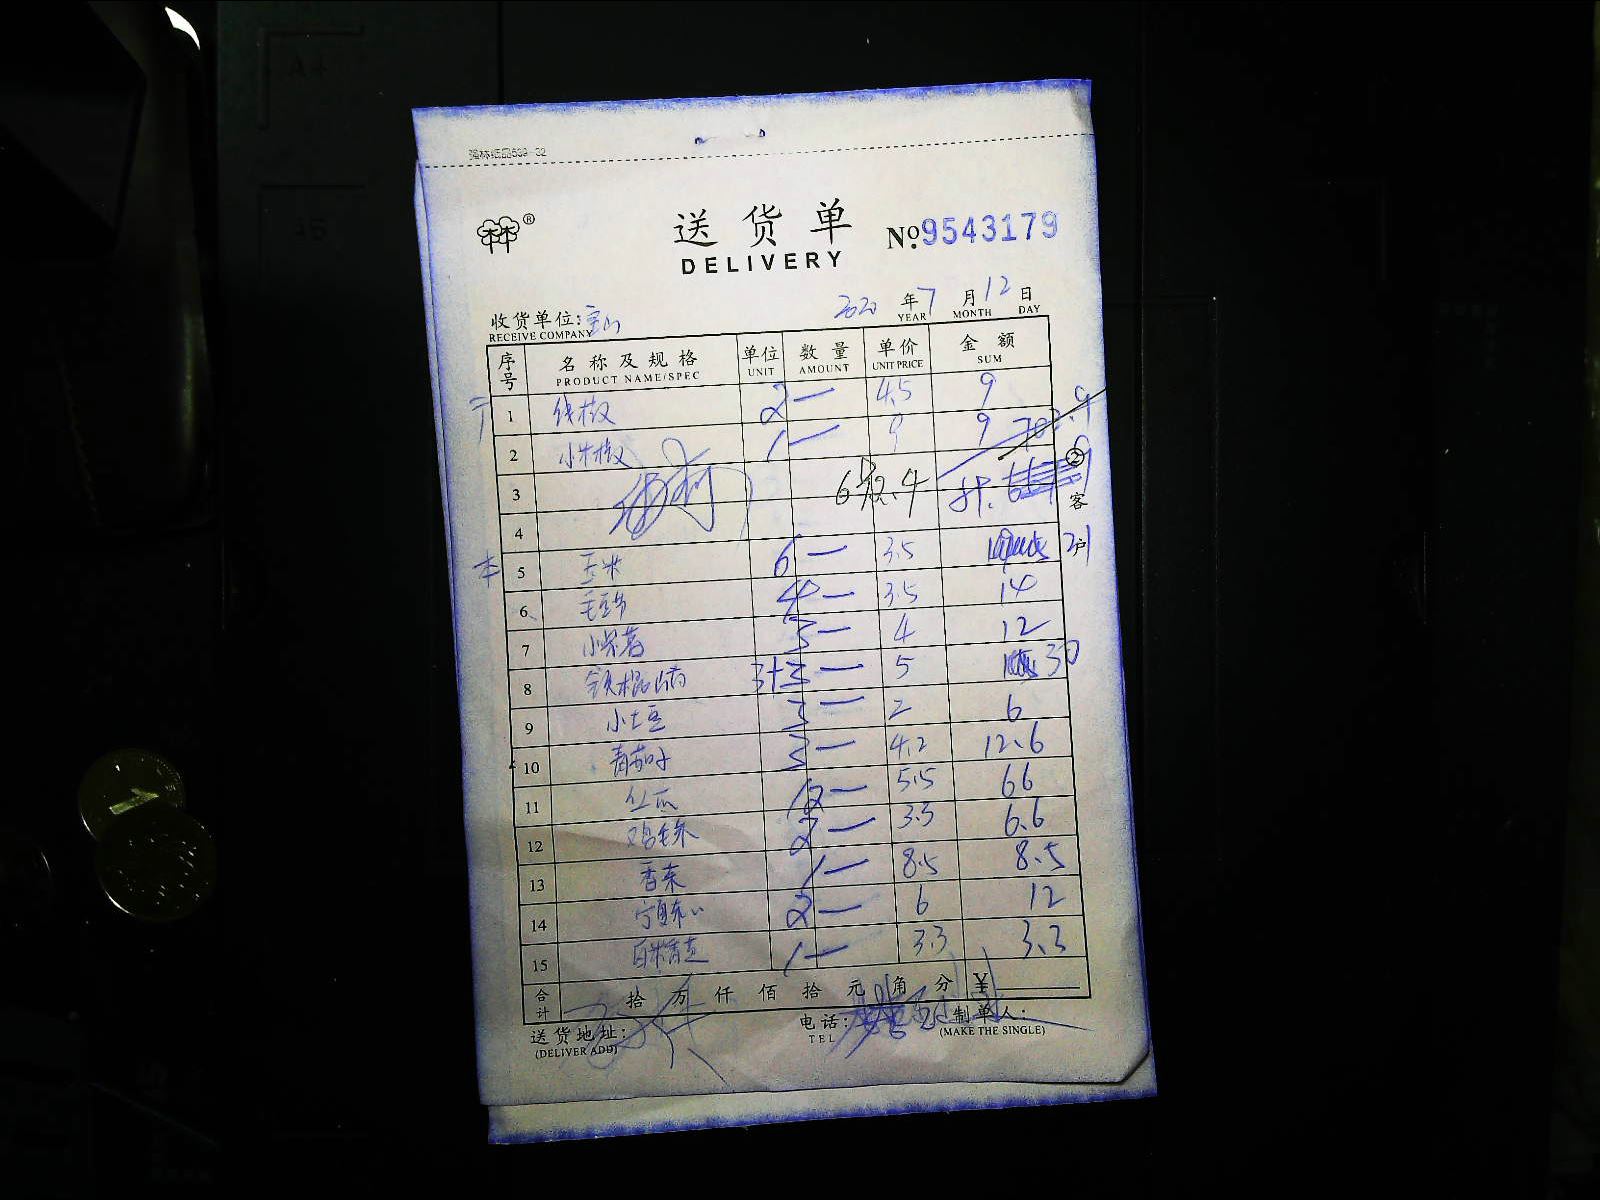 强林纸品539-32
送货单 №9543179
DELIVERY
收货单位:宝山 2020年7月12日
RECEIVE COMPANY YEAR MONTH DAY
序号 名称及规格 单位 数量 单价 金额
PRODUCT NAME/SPEC UNIT AMOUNT UNIT PRICE SUM
1 线椒 2一 4.5 9
2 小米椒 1一 9 9
3
4
5 玉米 6一 3.5 21
6 毛豆节 4一 3.5 14
7 小紫薯 3一 4 12
8 铁棍山药 3+3一 5 30
9 小土豆 3一 2 6
10 青茄子 3一 4.2 12.6
11 丝瓜 12一 5.5 66
12 鸡毛菜 2一 3.3 6.6
13 香菜 1一 8.5 8.5
14 2一 6 12
15 1一 3.3 3.3
合计 拾 万 仟 佰 拾 元 角 分 ¥
送货地址: 电话: 制单人:
(DELIVER ADD) TEL (MAKE THE SINGLE)
②客户